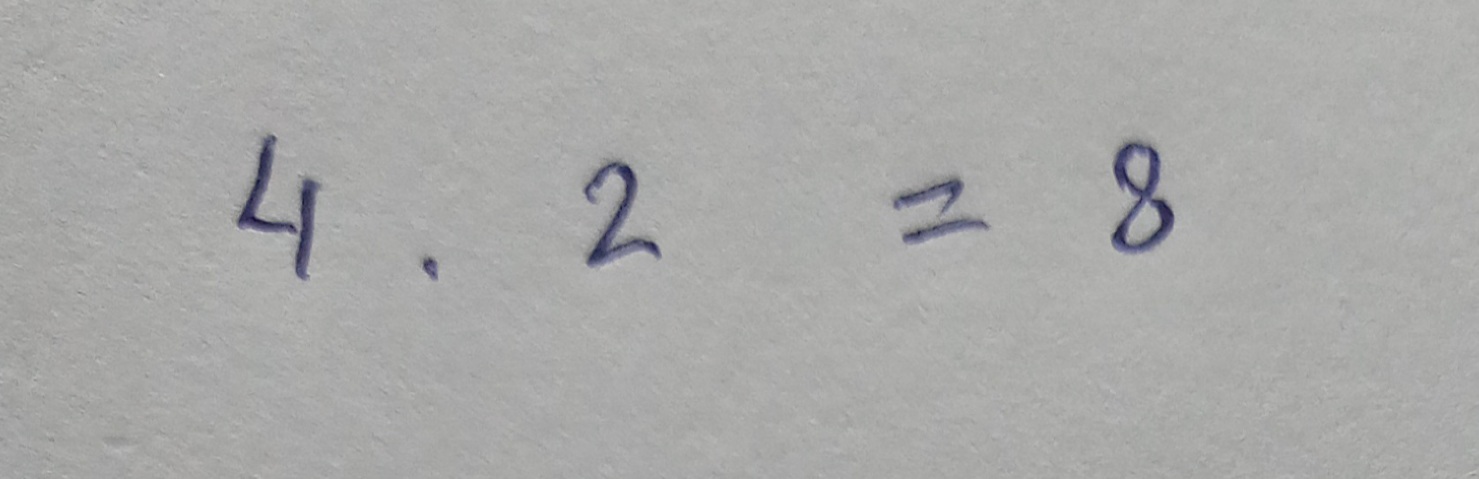 4 . 2 = 8